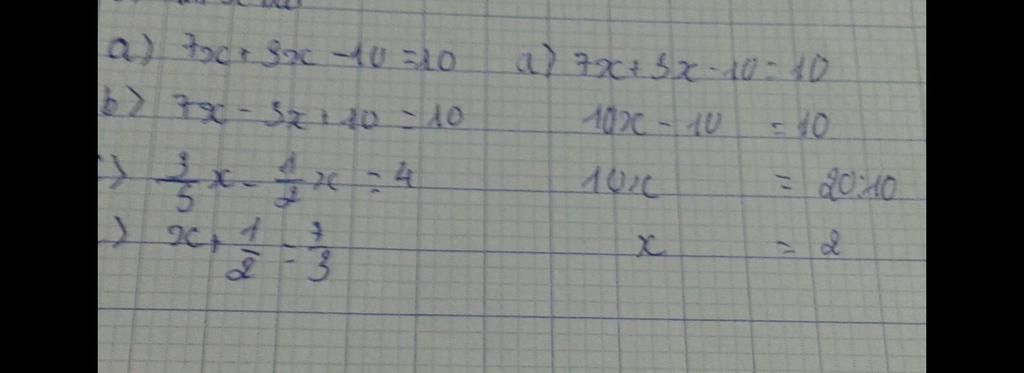 a) 7x + 3x - 10 = 10
b) 7x - 3x + 10 = 10
) 3/5 x - 1/2 x = 4
) x + 1/2 = 7/3
a) 7x + 3x - 10 = 10
10x - 10 = 10
10x = 20:10
x = 2